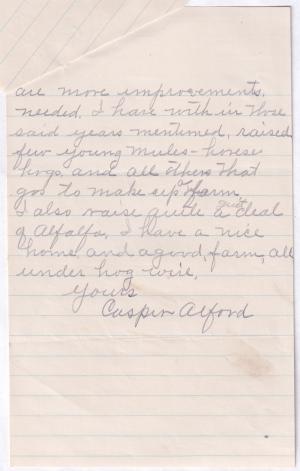 are more improvements,
needed. I have with in those
said years mentioned, raised
few young mules - horses
hogs, and all others that
goes to make up farm
I also raise quite a great deal
of Alfalfa. I have a nice
home and a good, farm, all
under hog wire.
Yours
Casper Alford